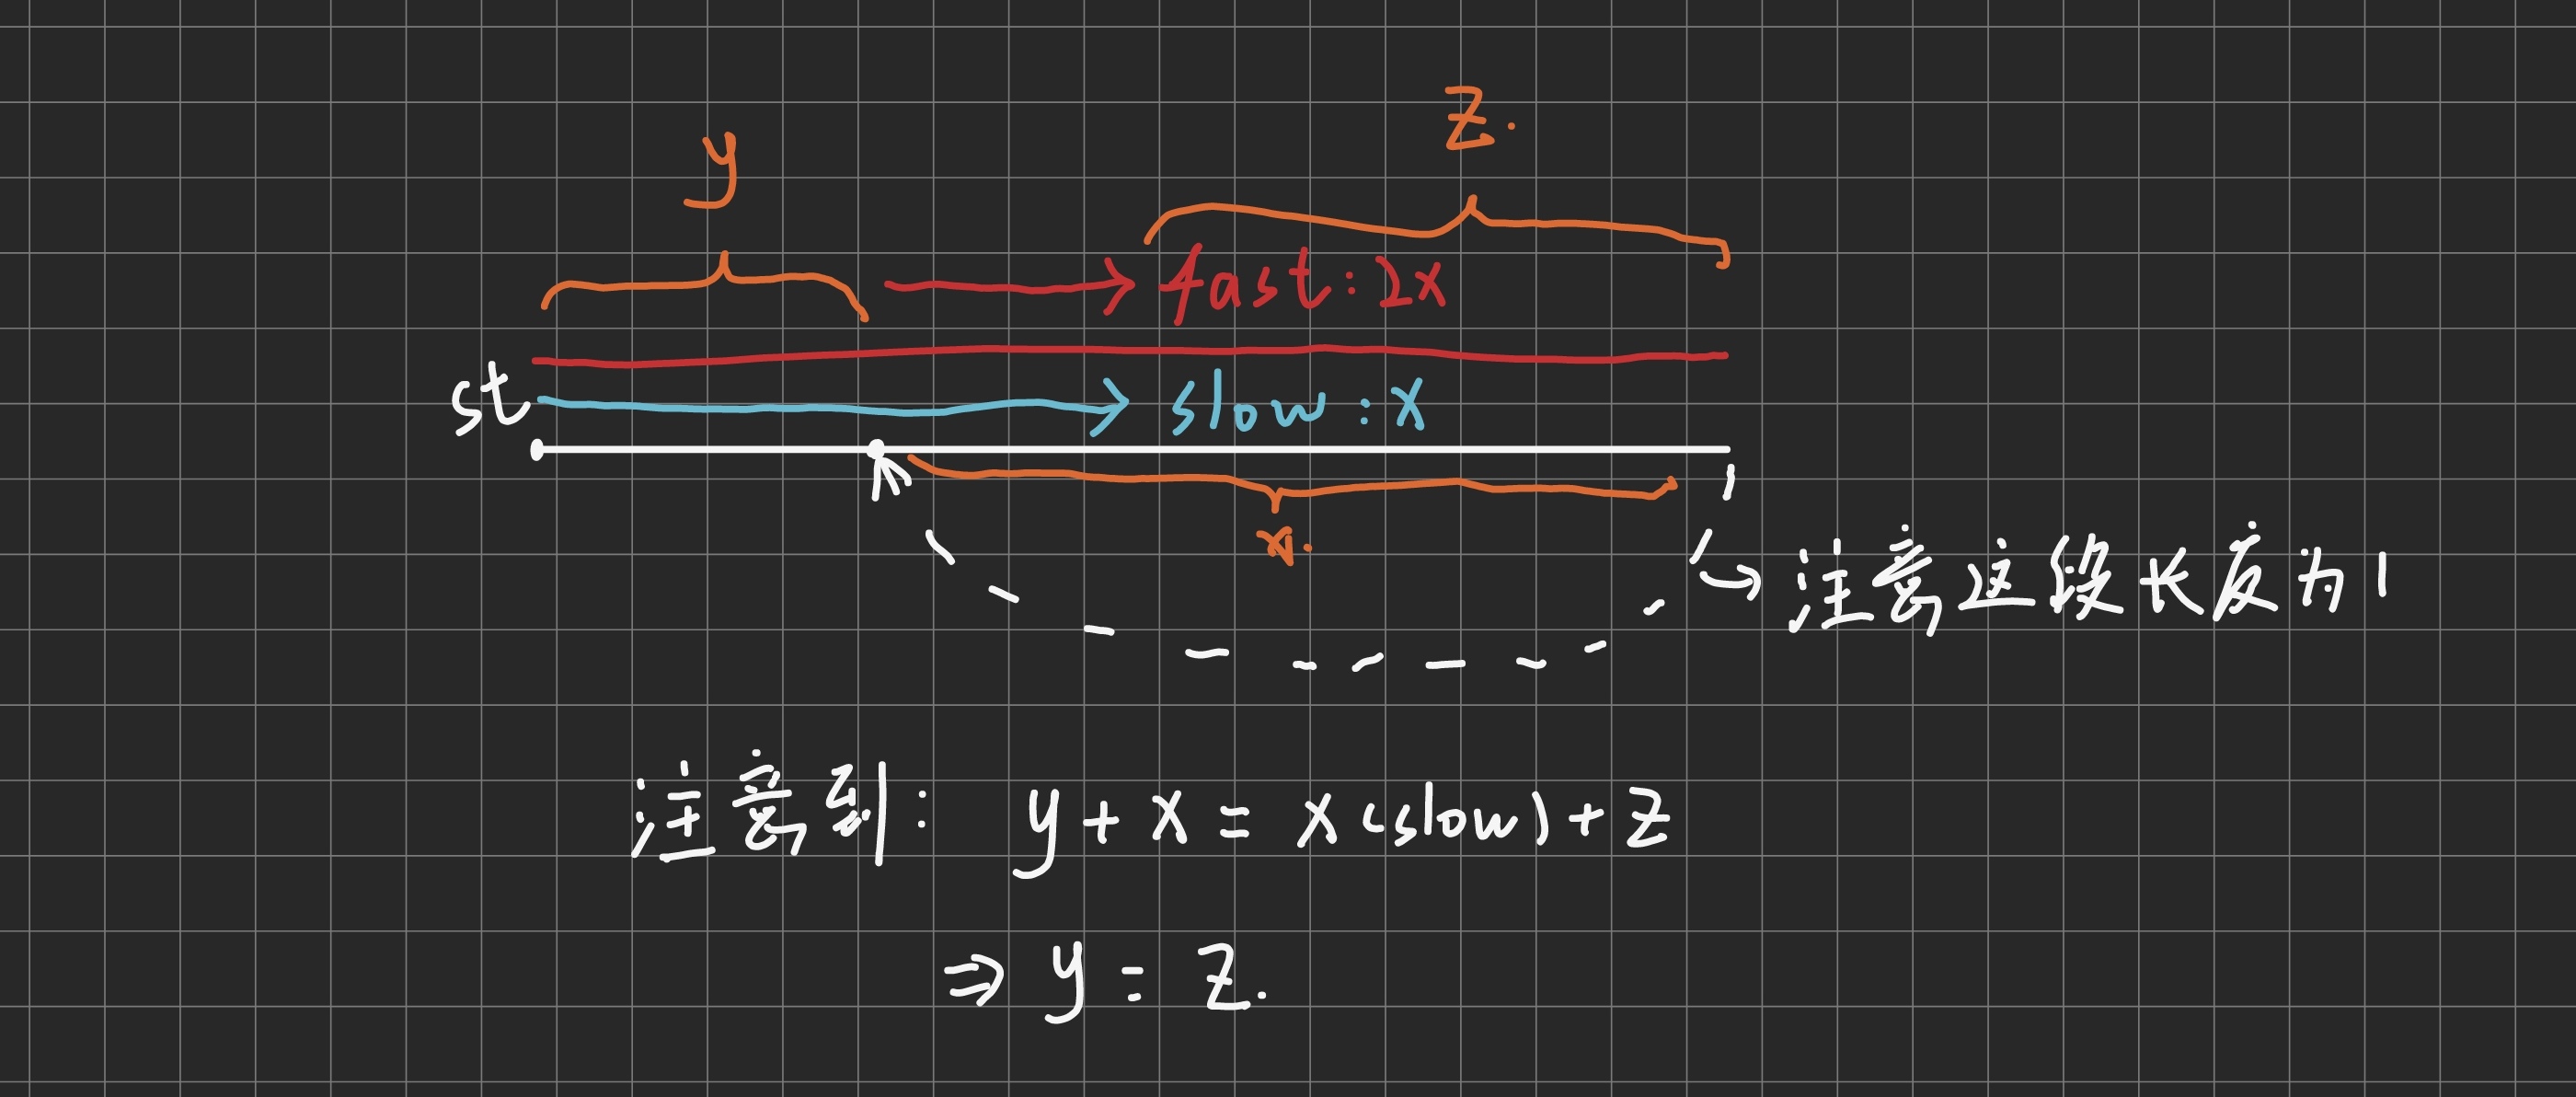 y
z.
fast:2x
st
slow:x
x.
注意这段长度为1
注意到: y+x=x(slow)+z
⇒ y=z.